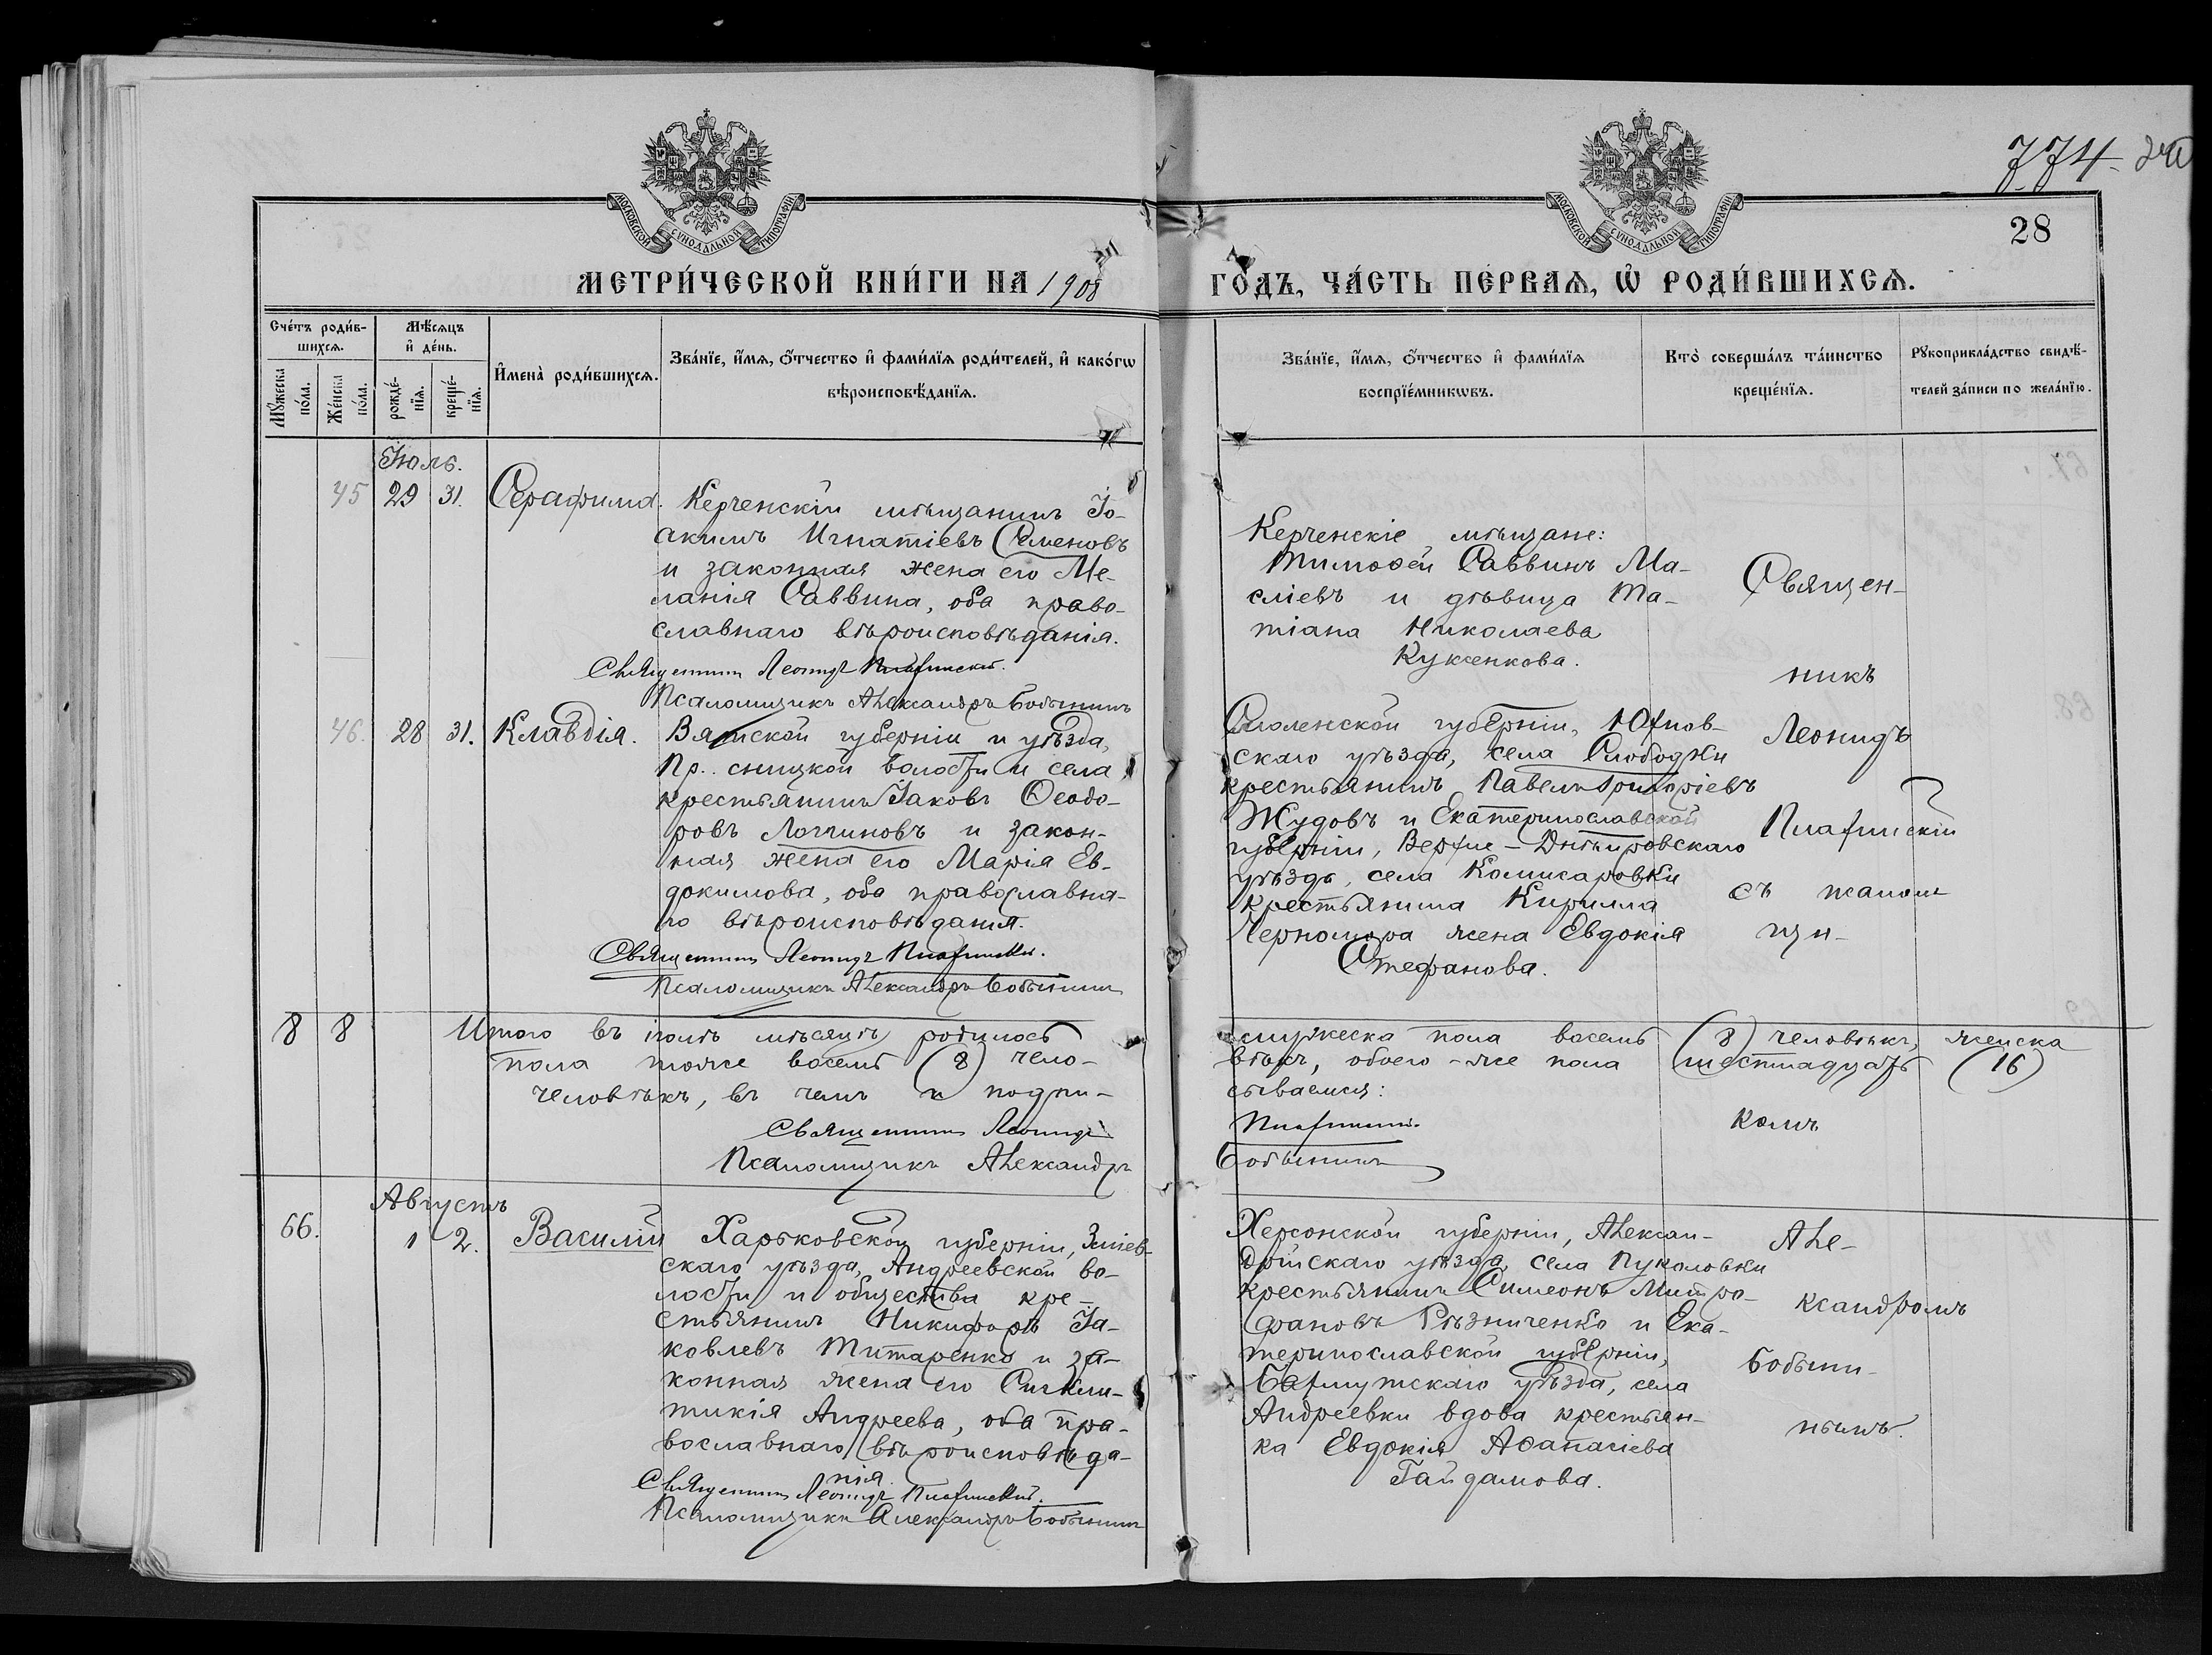 774
28
МОСКОВСКОЙ СУНОДАЛЬНОЙ ТИПОГРАФІИ
МОСКОВСКОЙ СУНОДАЛЬНОЙ ТИПОГРАФІИ
МЕТРИ́ЧЕСКОЙ КНИ́ГИ НА 1908 ГО́ДЪ, ЧА́СТЬ ПЕ́РВАѦ, Ѡ҆ РОДИ́ВШИХСѦ.
Сче́тъ роди́в-
шихсѧ.
Мꙋ́жеска по́ла.
Же́нска по́ла.
Мѣ́сѧцъ
и҆ де́нь.
рожде́-
нїѧ.
креще́-
нїѧ.
И҆мена̀ роди́вшихсѧ.
Зва́нїе, и҆́мѧ, ѻ҆́тчество и҆ фами́лїѧ роди́телей, и҆ како́гѡ
вѣроисповѣ́данїѧ.
Зва́нїе, и҆́мѧ, ѻ҆́тчество и҆ фами́лїѧ
воспрїе́мникѡвъ.
Кто̀ соверша́лъ та́инство
креще́нїѧ.
Рꙋкоприкла́дство свидѣ́-
телей за́писи по жела́нїю.
Іюль.
45 29 31. Серафима.
Керченскій мѣщанинъ Іо-
акимъ Игнатіевъ Семеновъ
и законная жена его Ме-
ланія Саввина, оба право-
славнаго вѣроисповѣданія.
Священникъ Леонидъ
Псаломщикъ Александръ Бобынинъ
Керченскіе мѣщане:
Тимоѳей Саввинъ Ма-
сліевъ и дѣвица Та-
тіана Николаева
Куксенкова.
Священ-
никъ
Леонидъ
съ псалом
щи-
комъ
46. 28 31. Клавдія.
Вятской губерніи и уѣзда,
волости и села
крестьянинъ Іаковъ Ѳеодо-
ровъ Логгиновъ и закон-
ная жена его Марія Ев-
докимова, оба православна-
го вѣроисповѣданія.
Священникъ Леонидъ
Псаломщикъ Александръ Бобынинъ
Смоленской губерніи, Юхнов-
скаго уѣзда, села Слободки
крестьянинъ Павелъ Григоріевъ
Жудовъ и Екатеринославской
губерніи, Верхне-Днѣпровскаго
уѣзда, села Комисаровки
крестьянина Кирилла
Черномора жена Евдокія
Стефанова.
8 8 Итого въ іюлѣ мѣсяцѣ родилось мужеска пола восемь (8) человѣкъ, женска
пола тоже восемь (8) чело-вѣкъ, обоего-же пола шестнадцать (16)
человѣкъ, въ чемъ и подпи-сываемся:
Священникъ Леонидъ
Псаломщикъ Александръ Бобынинъ
Августъ
66. 1 2. Василій
Харьковской губерніи, Зміев-
скаго уѣзда, Андреевской во-
лости и общества кре-
стьянинъ Никифоръ Іа-
ковлевъ Титаренко и за-
конная жена его Сигкли-
тикія Андреева, оба пра-
вославнаго вѣроисповѣда-
нія.
Священникъ Леонидъ
Псаломщикъ Александръ Бобынинъ
Херсонской губерніи, Алексан-
дрійскаго уѣзда, села Пуколовки
крестьянинъ Симеонъ Митро-
фановъ Рѣзниченко и Ека-
теринославской губерніи,
Бахмутскаго уѣзда, села
Андреевки вдова крестьян-
ка Евдокія Аѳанасіева
Гайдамова.
Але-
ксандромъ
Бобыни-
нымъ.